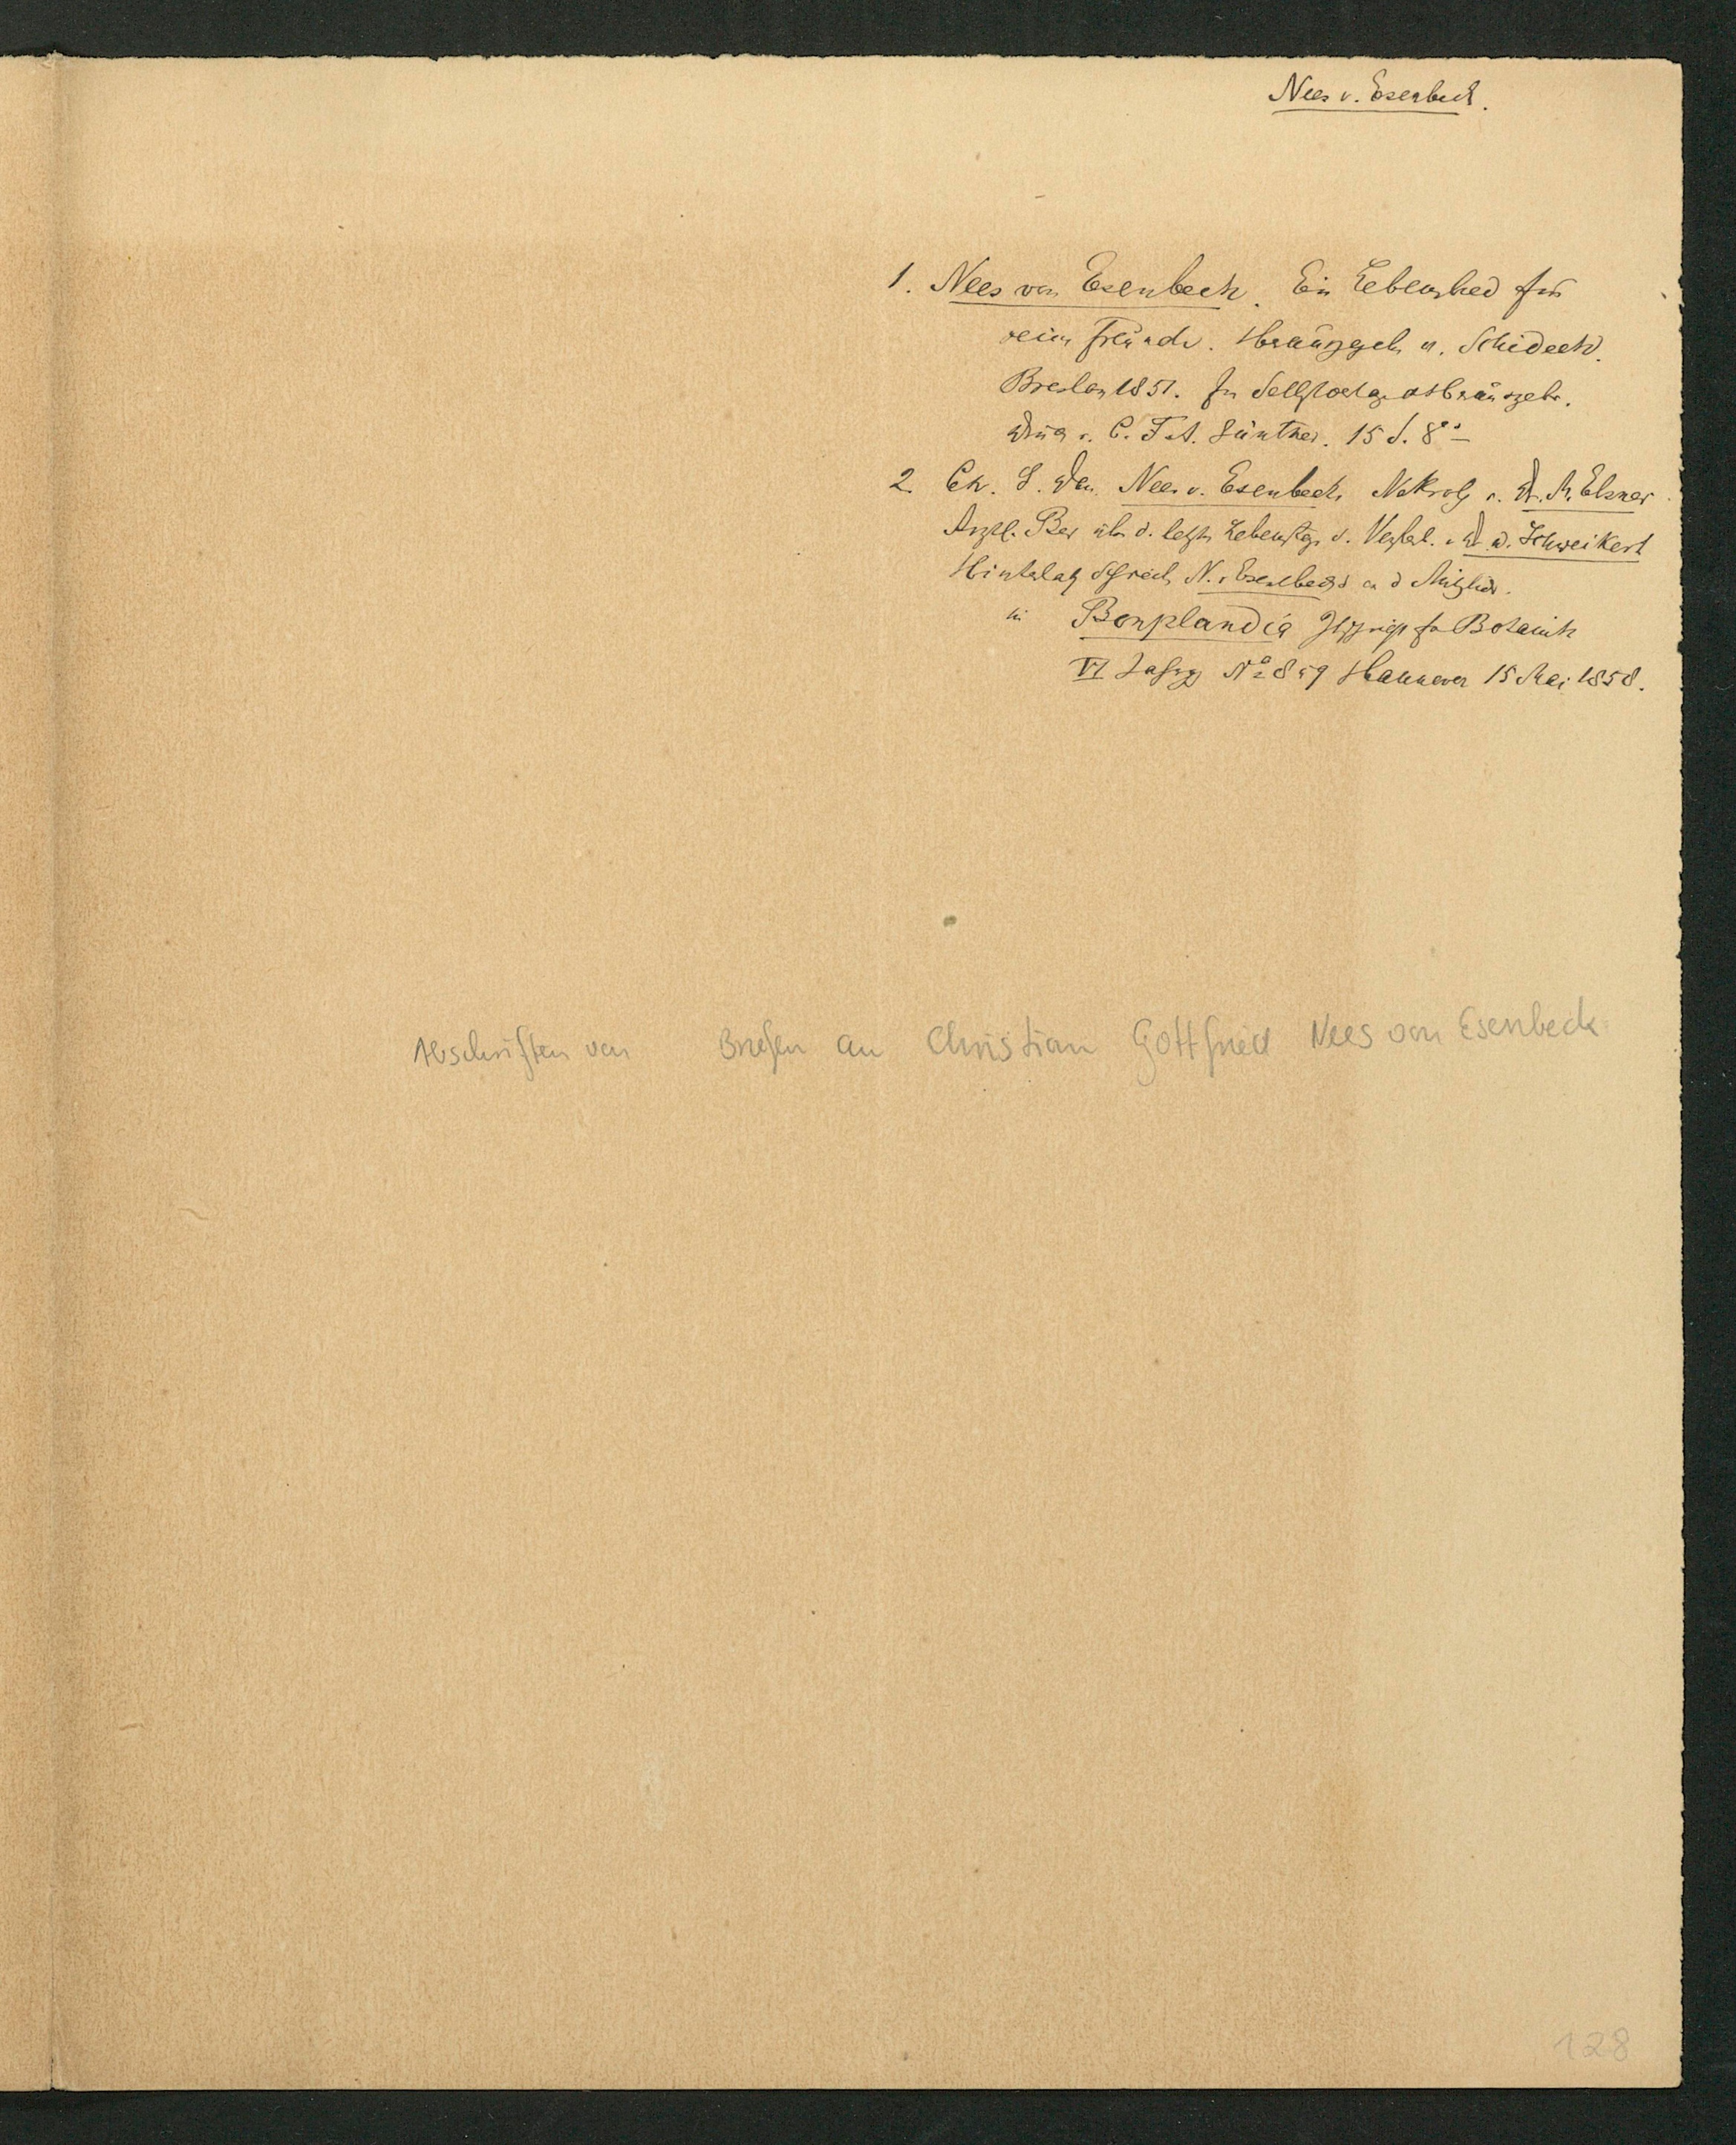 Nees v. Esenbeck.
1. Nees von Esenbeck. Ein Lebensbild für
seine Freunde. Herausgeb. v.
Breslau 1851. Im Selbstverlag d Herausgebr.
Druck v. C. F. A. Günther. 15 S. 8°
2. Ch. G. Dan. Nees v. Esenbeck, Nekrolg v. Dr. M. Elsner.
Ärztl. Ber über d. letzte Lebenstge d. v. Dr. W. Schweikert
Hinterlass Schreib N. v Esenbecks an d Mitglieder.
in Bonplandia Ztschrift für Botanik
VI Jahrg No 8 u 9 Hannover 15 Mai 1858.
Abschriften von Briefen an Christian Gottfried Nees von Esenbeck
128